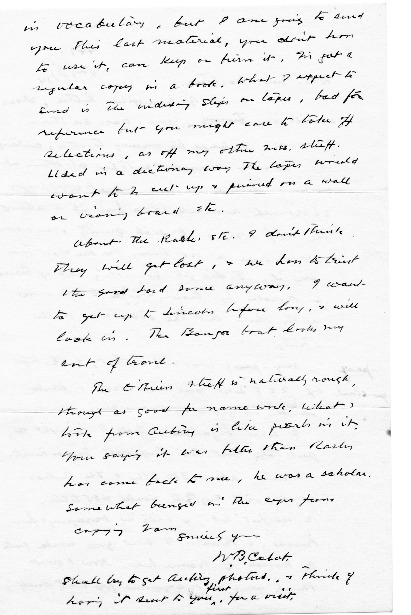 in vocabulary, but I am going to send
you this last material, you don't have
to use it, can keep or burn it. I've got a
regular copy in a book. What I expect to
send is the indexing slips on tapes, bad for
reference but you might care to take off
selections, as off my other mss. stuff.
Used in a dictionary way the tapes would
want to be cut up & pinned on a wall
or viewing board etc.
About the Rasles etc. I don't think
they will get lost, & we have to trust
the good lord some anyway. I want
to get up to Lincoln before long, & will
look in. The Bangor boat looks my
sort of travel.
The O'Brien stuff is naturally rough,
though as good for name work. What I
took from Aubery is like pearls in it.
Your saying it was better than Rasles
has come back to me, he was a scholar.
Somewhat bunged in the eyes from
copying I am
Sincerely yours
W.B. Cabot.
Shall try to get Aubery photoed, & think of
having it sent to you first, for a visit.